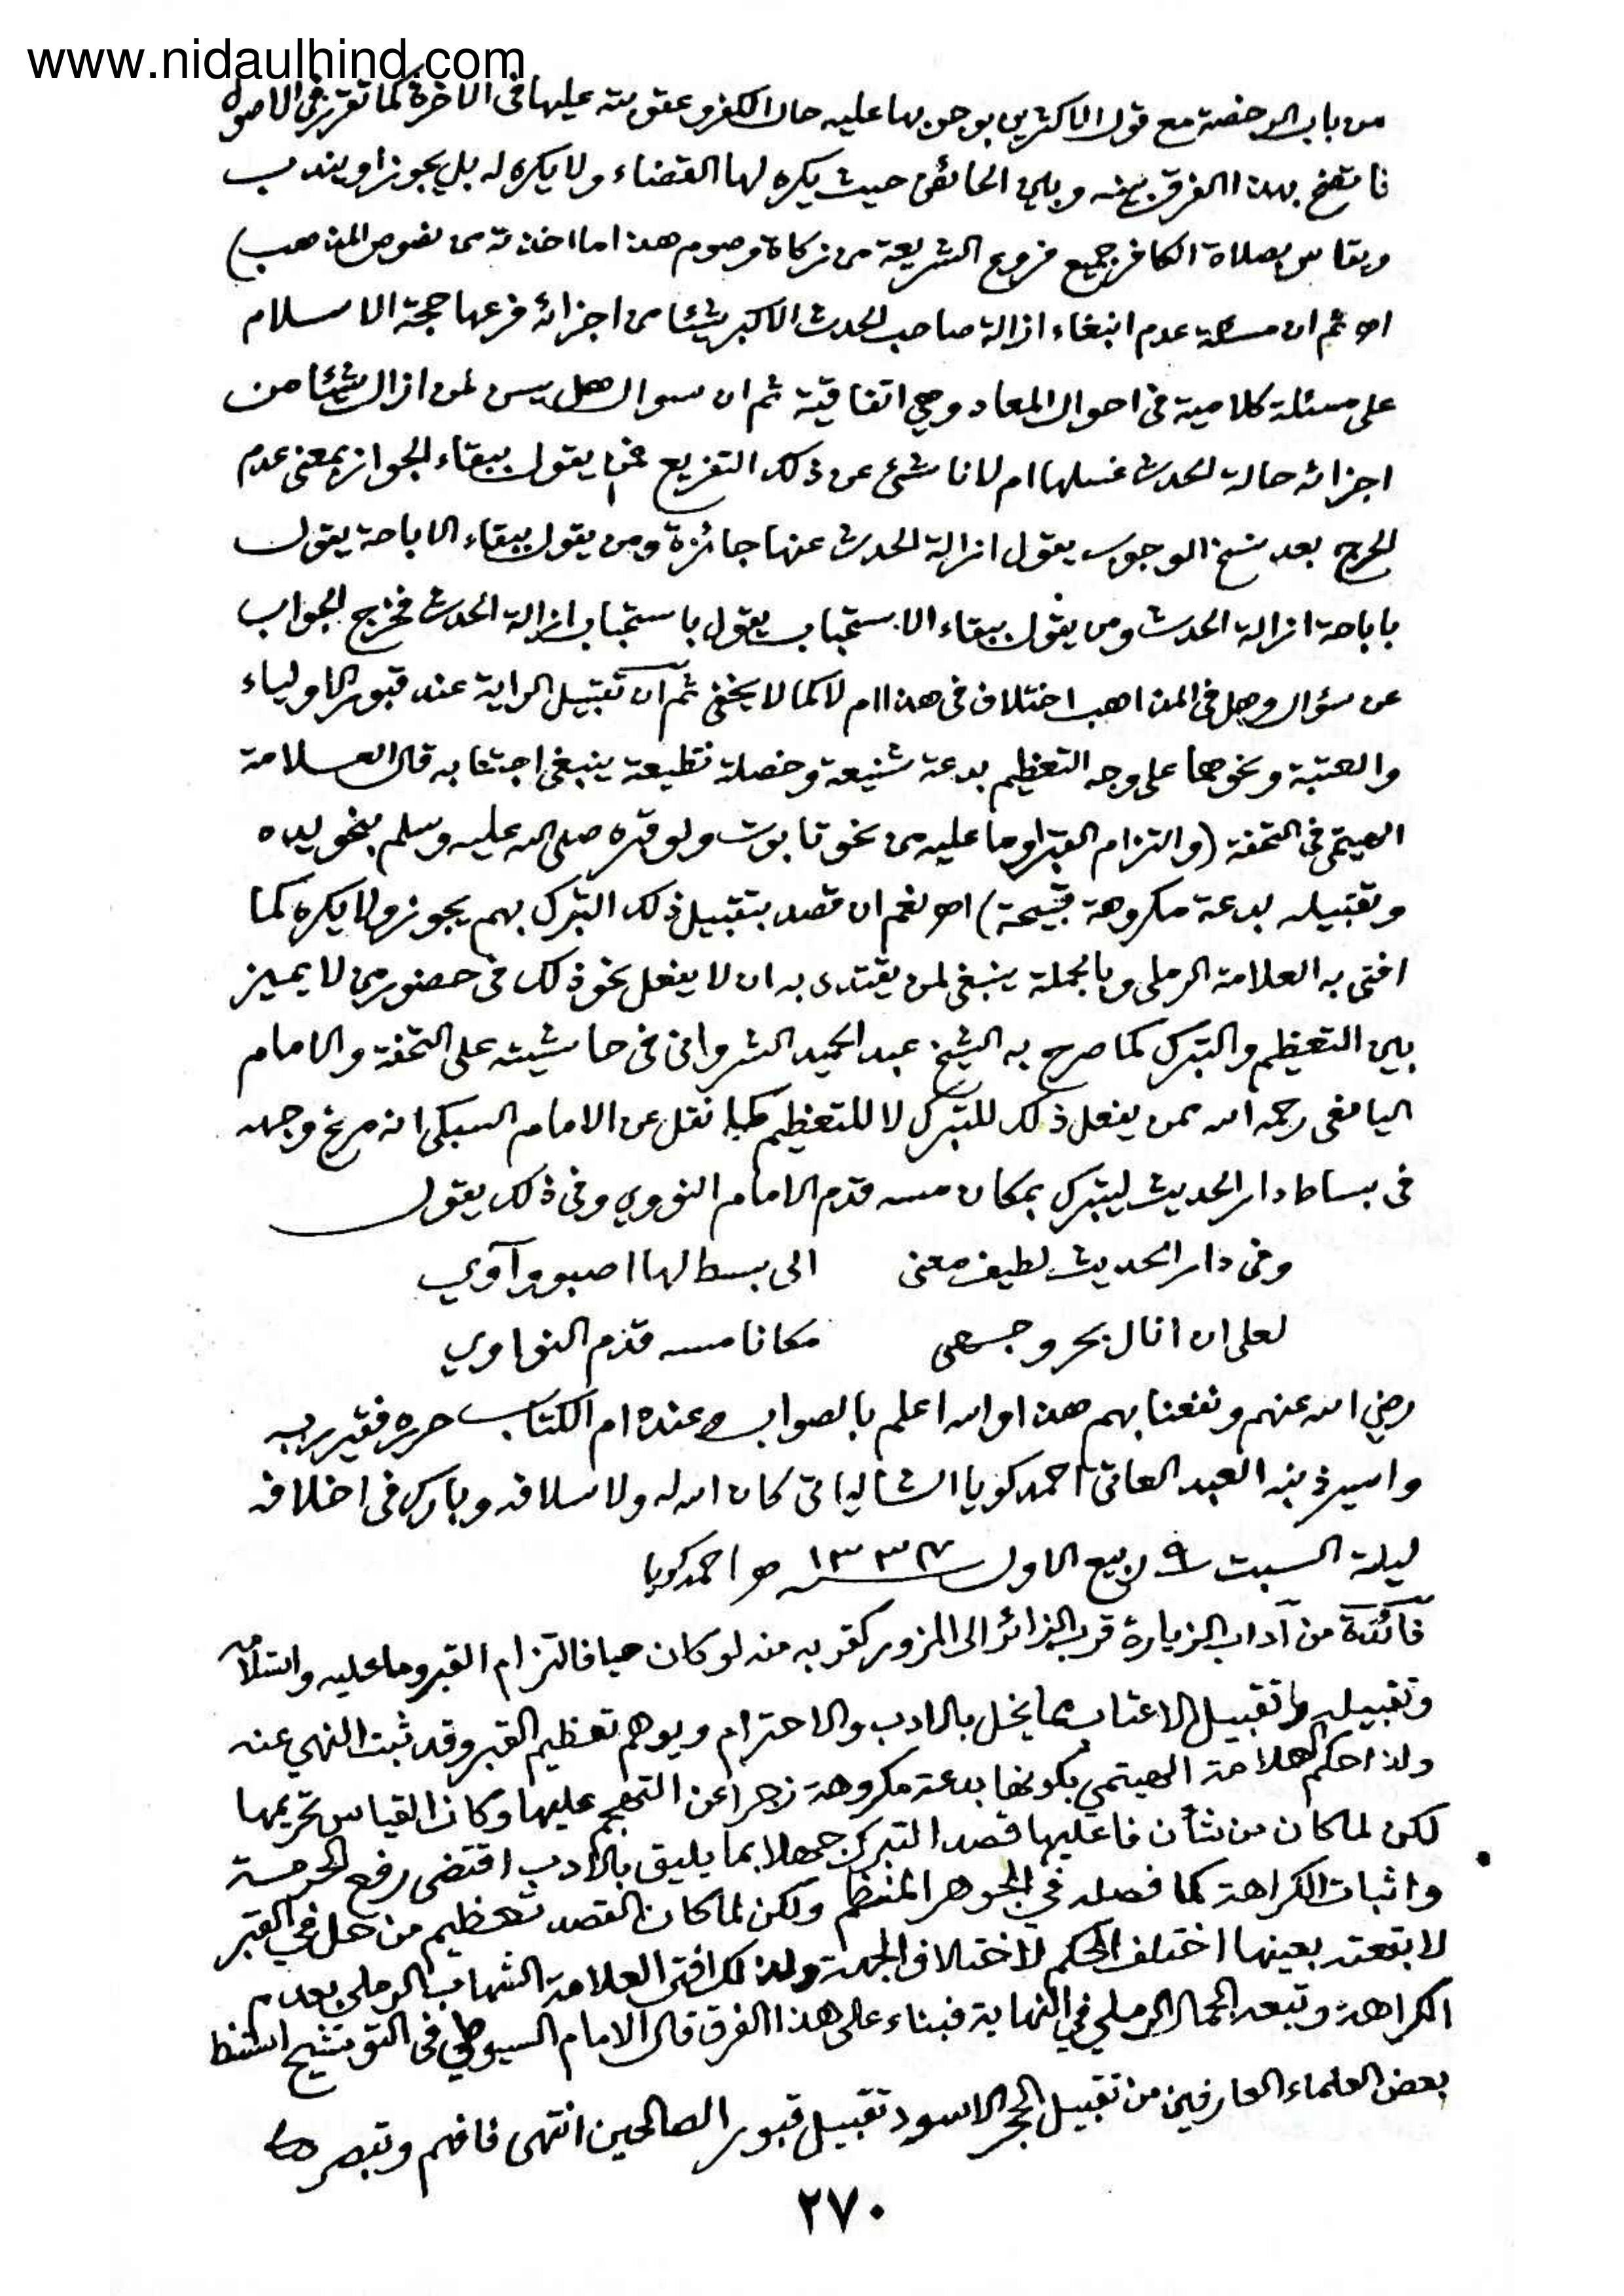 www.nidaulhind.com
من باب الرخصة مع قول الاكثرين بوجوبها عليه حال الكفر وعقوبته عليها في الآخرة كما تقرر في الاصول
فاتضح بهذا الفرق بينه وبين الحائض حيث يكره لها القضاء ولا يكره له بل يجوز او يندب
ويقاس بصلاة الكافر جميع فروع الشريعة من زكاة وصوم هذا ما اخذته من نصوص المذاهب)
اھ ثم ان مسئلة عدم ابتغاء ازالة صاحب الحدث الاكبر شيئا من اجزائه فرعها حجة الاسلام
على مسئلة كلامية في احوال المعاد وهي اتفاقية ثم ان سوال هل يسن لمن ازال شيئا من
اجزائه حالة الحدث غسلها ام لا ناشئ عن ذلك التفريع فمن يقول ببقاء الجواز بمعنى عدم
الحرج بعد نسخ الوجوب يقول ازالة الحدث عنها جائزة ومن يقول ببقاء الاباحة يقول
باباحة ازالة الحدث ومن يقول ببقاء الاستحباب يقول باستحباب ازالة الحدث فخرج الجواب
عن سؤال وهل في المذاهب اختلاف في هذا ام لا كما لا يخفى ثم ان تقبيل الراية عند قبور الاولياء
والعتبة ونحوهما على وجه التعظيم بدعة شنيعة وخصلة فظيعة ينبغي اجتنابه قال العلامة
الهيتمي في التحفة (والتزام القبر او ما عليه من نحو تابوت ولو قبره صلى الله عليه وسلم بنحو يده
وتقبيله بدعة مكروهة قبيحة) اھ نعم ان قصد بتقبيل ذلك التبرك بهم يجوز ولا يكره كما
افتى به العلامة الرملي وبالجملة ينبغي لمن يقتدى به ان لا يفعل نحو ذلك في حضور من لا يميز
بين التعظيم والتبرك كما صرح به الشيخ عبد الحميد الشرواني في حاشيته على التحفة والامام
اليافعي رحمه الله ممن يفعل ذلك للتبرك لا للتعظيم كما نقل عن الامام السبكي انه مرغ وجهه
في بساط دار الحديث ليتبرك بمكان مسه قدم الامام النووي وفي ذلك يقول
وفي دار الحديث لطيف معنى الى بسط لها اصبو وآوي
لعلي ان انال بحر وجهي مكانا مسه قدم النواوي
رضي الله عنهم ونفعنا بهم هذا والله اعلم بالصواب وعنده ام الكتاب حرره فقير ربه
واسير ذنبه العبد العاتي احمد كويا الشالياتي كان الله له ولاسلافه وبارك في اخلافه
ليلة السبت ٩ ربيع الاول ١٣٣٧ هـ احمد كويا
فائدة من آداب الزيارة قرب الزائر الى المزور كقربه منه لو كان حيا فالتزام القبر وما عليه واستلامه
وتقبيله وتقبيل الاعتاب مما يخل بالادب والاحترام ويوهم تعظيم القبر وقد ثبت النهي عنه
ولذا حكم العلامة الهيتمي بكونها بدعة مكروهة زجرا عن التهجم عليها وكان القياس تحريمها
لكن لما كان من شأن فاعليها قصد التبرك جهلا بما يليق بالادب اقتضى رفع الحرمة
واثبات الكراهة كما فصله في الجوهر المنظم ولكن لما كان القصد تعظيم من حل في القبر
لا بقعته بعينها اختلف الحكم لاختلاف الجهة ولذلك افتى العلامة الشهاب الرملي بعدم
الكراهة وتبعه الجمال الرملي في النهاية فبناء على هذا الفرق قال الامام السيوطي في التوشيح استنبط
بعض العلماء العارفين من تقبيل الحجر الاسود تقبيل قبور الصالحين انتهى فافهم وتبصر
٢٧٠